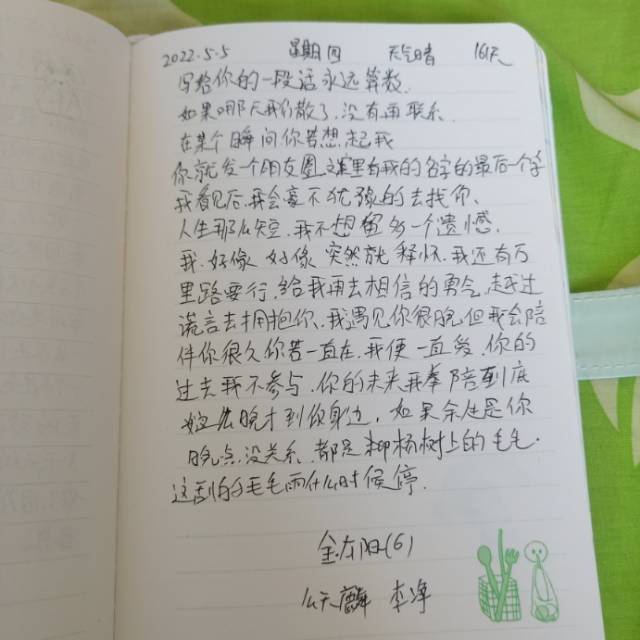 2022.5.5 星期四 天气晴 161天
写给你的一段话永远算数.
如果哪天我们散了,没有再联系.
在某个瞬间你若想起我
你就发一个朋友圈文案里有我的名字的最后一个字
我看见后,我会毫不犹豫的去找你、
人生那么短,我不想留多一个遗憾.
我.好像.好像 突然就 释怀.我还有万
里路要行,给我再去相信的勇气.越过
谎言去拥抱你、我遇见你很晚,但我会陪
伴你很久你若一直在.我便一直爱.你的
过去我不参与.你的未来我奉陪到底
这么晚才到你身边,如果余生是你
晚点没关系 都是柳杨树上的毛毛.
这到的毛毛雨什么时候停.
(6)
李净